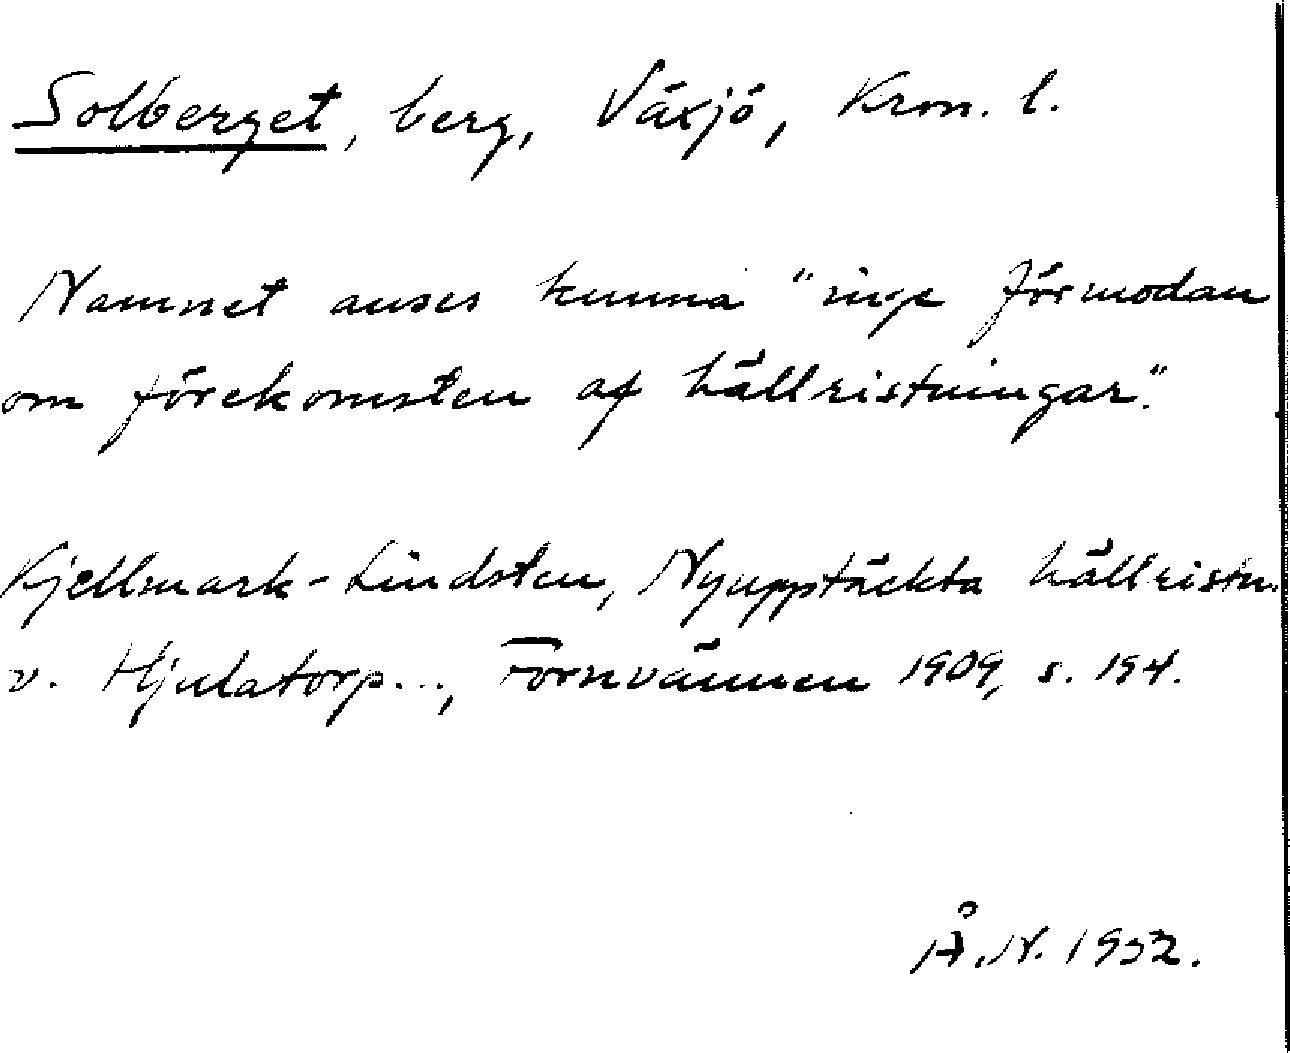 Solberget, berg, Växjö, Kron. l.
Namnet anses kunna "inge förmodan
om förekomsten af hällristningar."
Kjellmark-Lindsten, Nyupptäckta hällristn.
v. Hjulatorp..., Fornvännen 1909, s. 194.
Å.N. 1932.